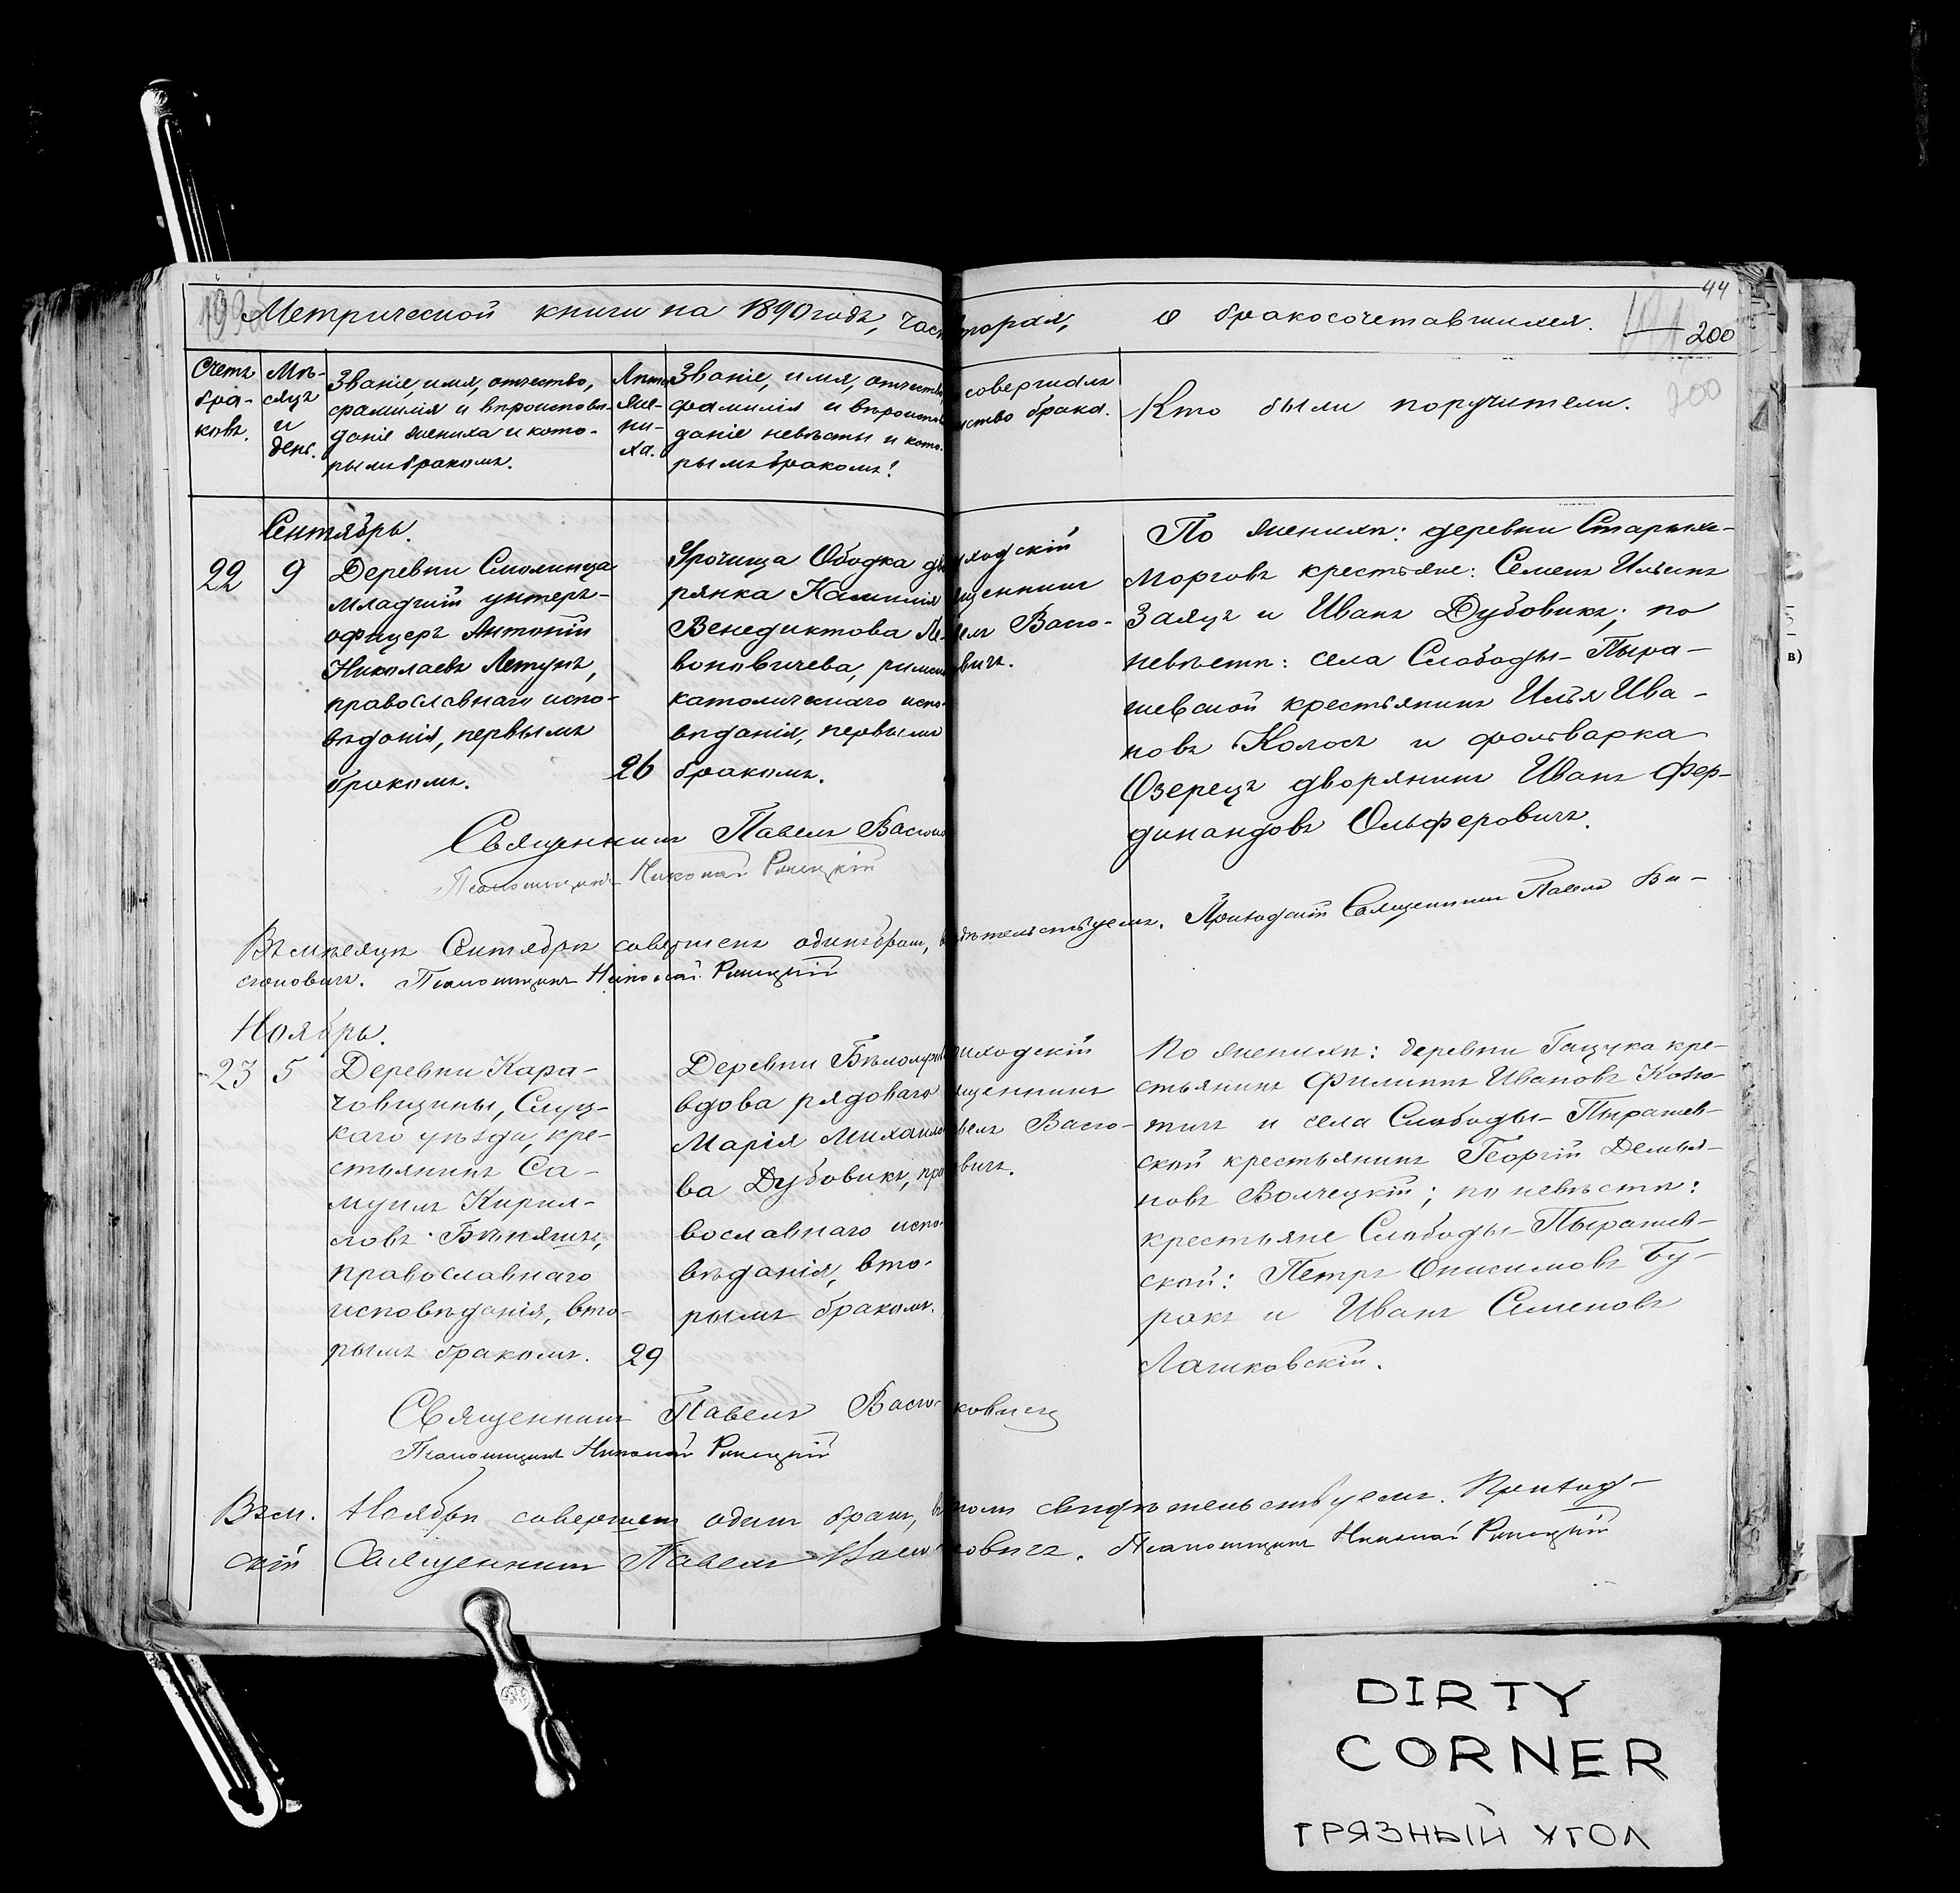 44
Метрической книги на 1890 годъ, час торая, о бракосочетавшихся.
200
200
Счетъ
бра-
ковъ.
Мѣ-
сяцъ
и
день.
Званіе, имя, отчество,
фамилія и вѣроисповѣ-
даніе жениха и кото-
рымъ бракомъ.
Лѣта
же-
ни-
ха.
Званіе, имя, отчество,
фамилія и вѣроиспов
даніе невѣсты и кото-
рымъ бракомъ?
совершалъ
нство брака.
Кто были поручители.
Сентябрь.
22
9
Деревни Смолинца
младшій унтеръ-
офицеръ Антоній
Николаевъ Летунъ,
православнаго испо-
вѣданія, первымъ
бракомъ.
26
Урочища Ободка дво
рянка Камилія
Венедиктова Ле-
воновичева, римско
католическаго испо-
вѣданія, первымъ
бракомъ.
иходскій
ященникъ
велъ Васю-
вичъ.
По женихѣ: деревни Старыхъ-
Морговъ крестьяне: Семенъ Ильинъ
Заяцъ и Иванъ Дубовикъ; по
невѣстѣ: села Слободы-Пыра-
шевской крестьянинъ Илья Ива-
новъ Колосъ и фольварка
Озерецъ дворянинъ Иванъ Фер-
динандовъ Ольферовичъ.
Священникъ Павелъ Васю
Псаломщикъ Николай
Въ мѣсяцѣ Сентябрѣ совершенъ одинъ бракъ, дѣтельствуемъ. Приходскій Священникъ Павелъ Ва-
сюковичъ. Псаломщикъ Николай
Ноябрь.
23
5
Деревни Кара-
човщины, Слуц-
каго уѣзда, кре-
стьянинъ Са-
муилъ Кирил-
ловъ
православнаго
исповѣданія, вто-
рымъ бракомъ.
29
Деревни
вдова рядоваго
Марія Михайло
ва Дубовикъ, пра
вославнаго испо-
вѣданія, вто-
рымъ бракомъ.
иходскій
ященникъ
велъ Васю-
вичъ.
По женихѣ: деревни Гацука кре-
стьянинъ Филиппъ Ивановъ Коно-
тичъ и села Слободы-Пырашев-
ской крестьянинъ Георгій Демья-
новъ Волчецкій; по невѣстѣ:
крестьяне Слободы-Пырашев-
ской: Петръ Онисимовъ Бу-
ракъ и Иванъ Семеновъ
Лашковскій.
Священникъ Павелъ Васю- ковичъ
Псаломщикъ Николай
Въ м. Ноябрѣ совершенъ одинъ бракъ, въ томъ свидѣтельствуемъ. Приход-
скій Священникъ Павелъ Васю ковичъ. Псаломщикъ Николай
в)
DIRTY
CORNER
ГРЯЗНЫЙ УГОЛ